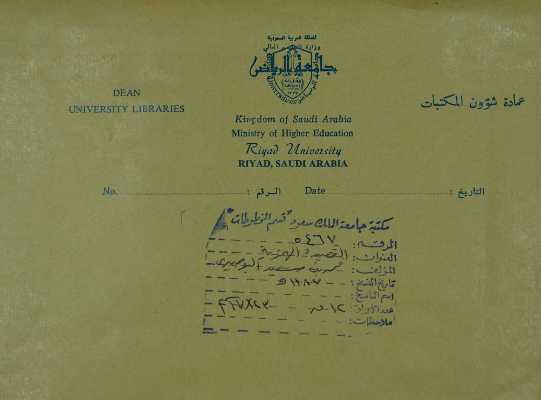 المملكة العربية السعودية
وزارة التعليم العالي
جامعة الرياض
DEAN
UNIVERSITY LIBRARIES
عمادة شؤون المكتبات
Kingdom of Saudi Arabia
Ministry of Higher Education
Riyad University
RIYAD, SAUDI ARABIA
No. الرقم :
Date التاريخ :
مكتبة جامعة الملك سعود قسم المخطوطات
الرقم: ٥٤٦٧
العنوان: القصيدة الهمزية
المؤلف: محمد بن سعيد البوصيري
تاريخ النسخ:
اسم الناسخ:
عدد الأوراق: ١٢
ملاحظات: